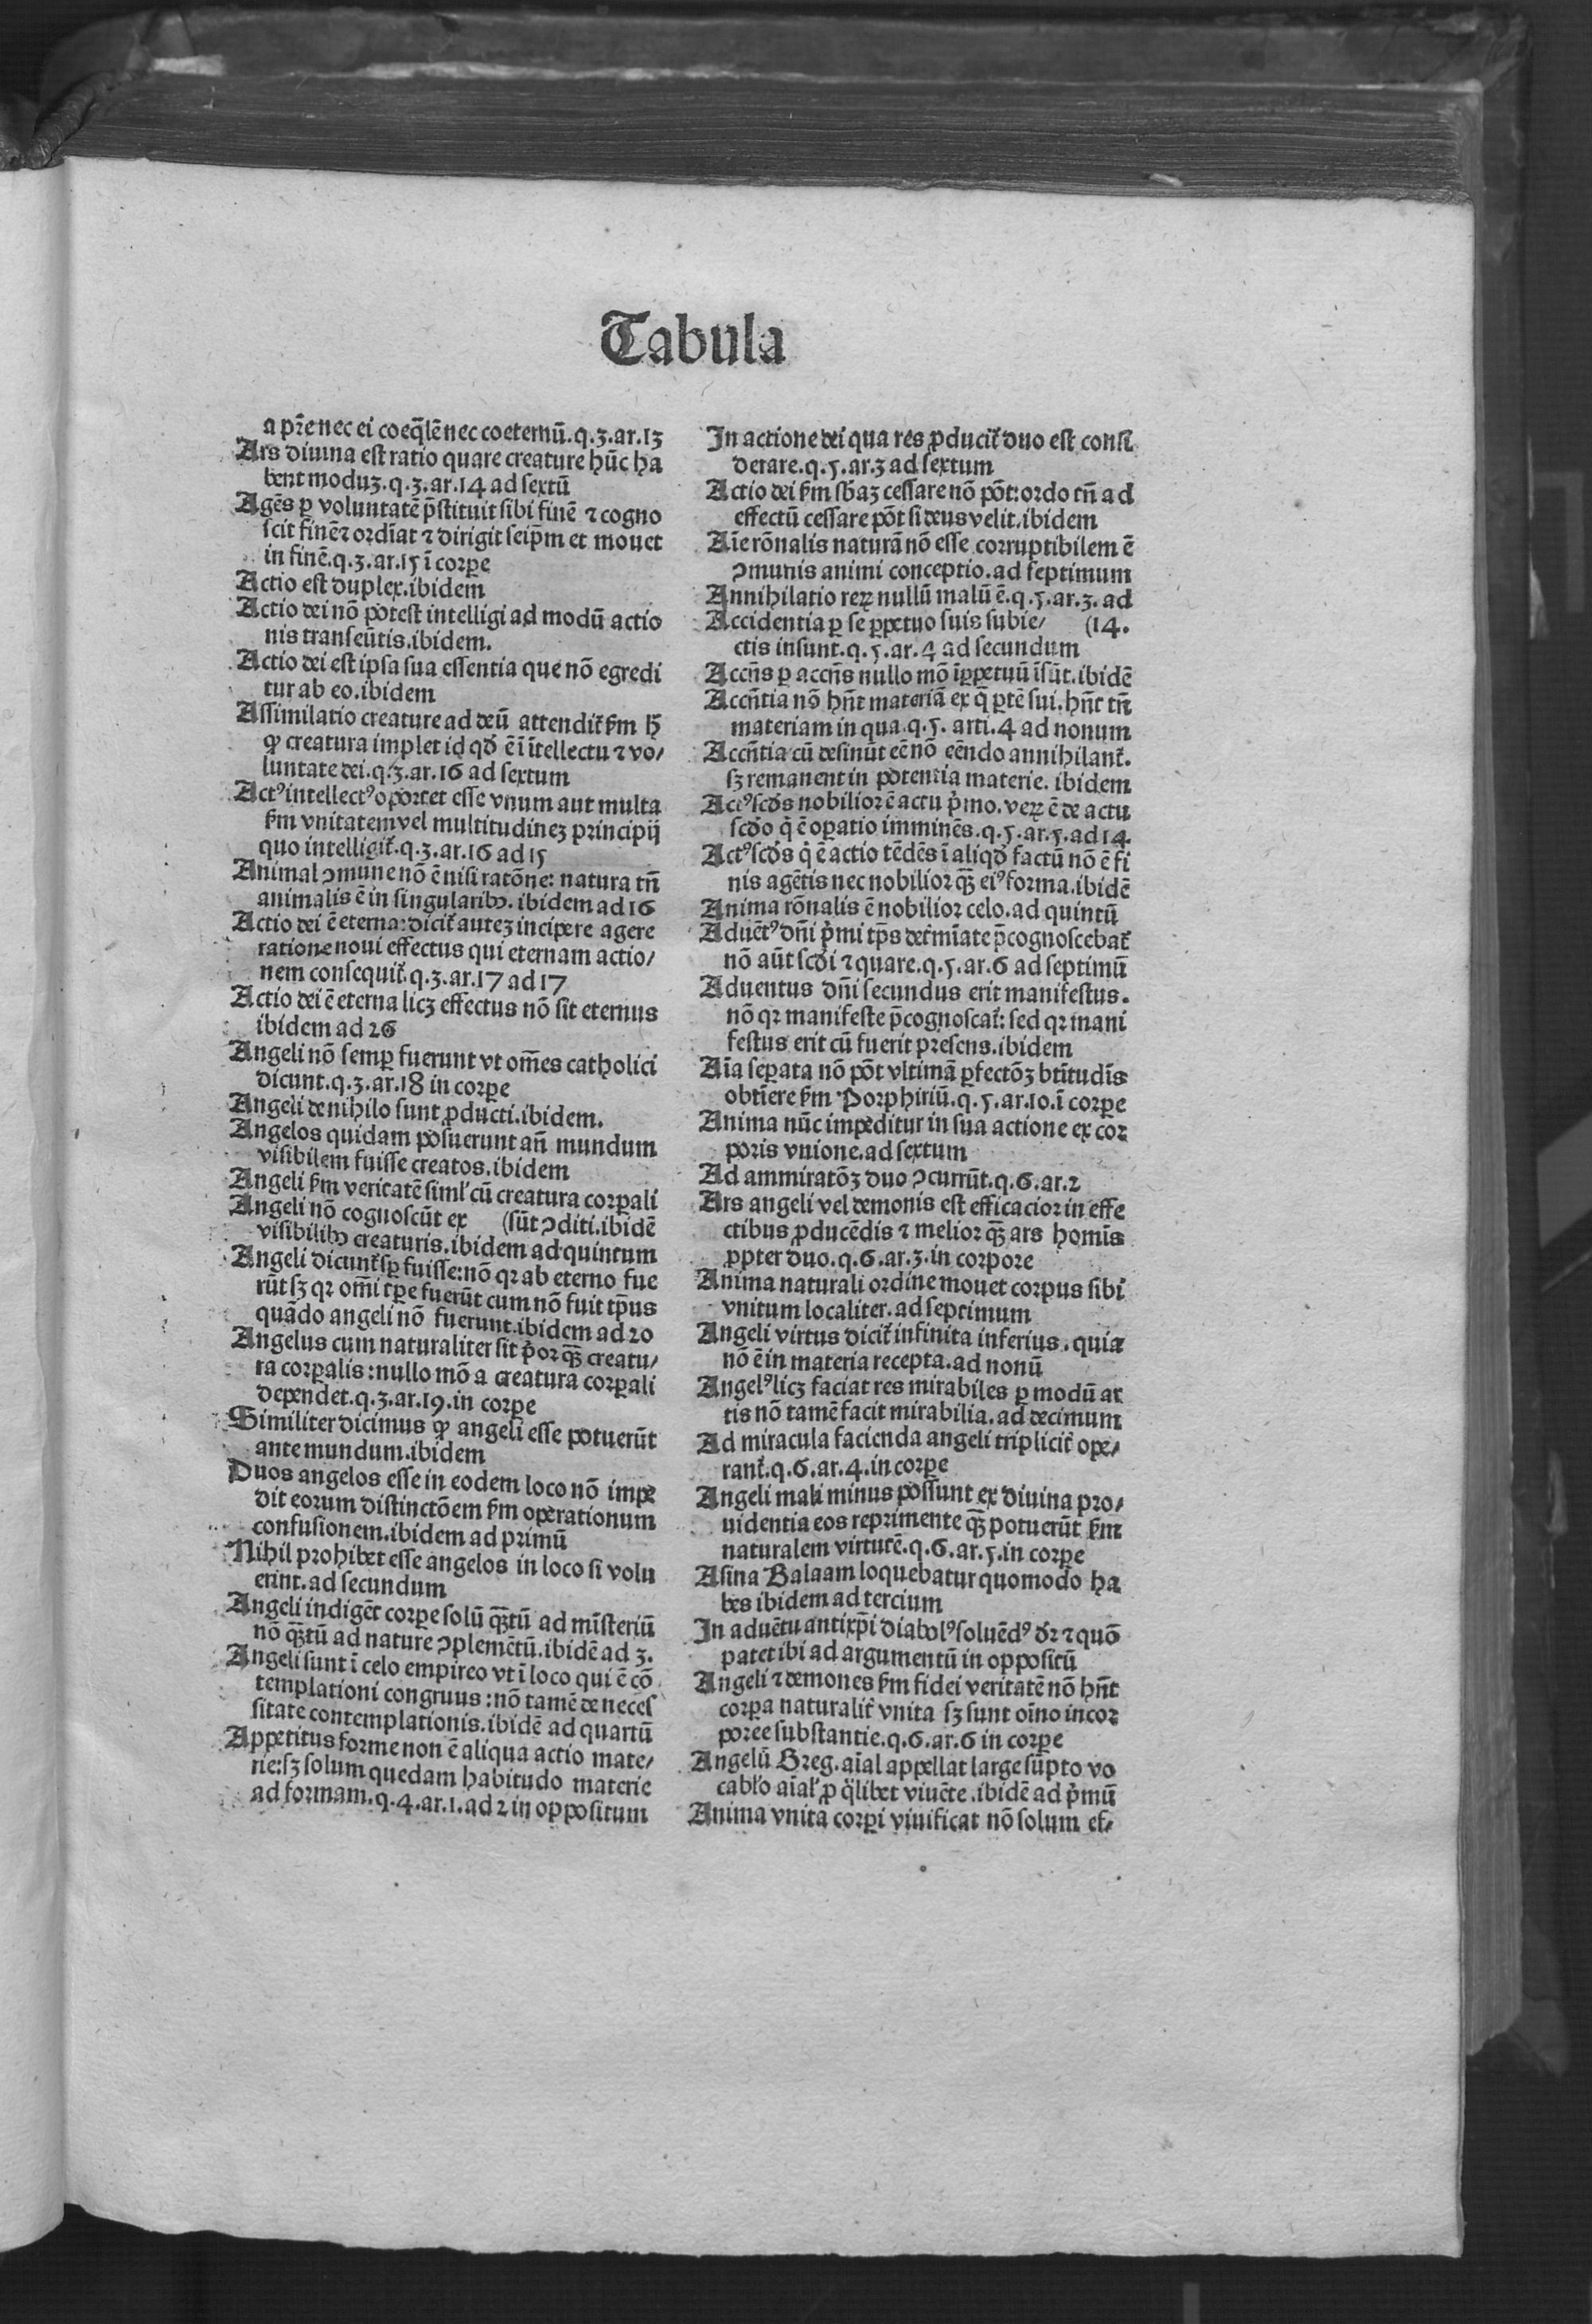 Tabula
a pr̄e nec ei coeq̄lē nec coeternū.q.3.ar.13
Ars diuina est ratio quare creature hūc ha
bent moduꝫ.q.3.ar.14 ad sextū
Agēs ꝑ voluntatē p̄stituit sibi finē ⁊ cogno
scit finē⁊ ordīat ⁊ dirigit seip̄m et mouet
in finē.q.3.ar.15 ī corpe
Actio est duplex.ibidem
Actio dei nō potest intelligi ad modū actio
nis transeūtis.ibidem.
Actio dei est ipsa sua essentia que nō egredi
tur ab eo.ibidem
Assimilatio creature ad deū attendit᷑ ẜm ꝉꝫ
ꝙ creatura implet id qd̄ ē ī ītellectu ⁊ vo/
luntate dei.q.3.ar.16 ad sextum
Actꝰ intellectꝰ oportet esse vnum aut multa
ẜm vnitatem vel multitudineꝫ principij
quo intelligit᷑.q.3.ar.16 ad 15
Animal ꝯmune nō ē nisi ratōne: natura tn̄
animalis ē in singularibꝰ. ibidem ad 16
Actio dei ē eterna: dicit᷑ auteꝫ incipere agere
ratione noui effectus qui eternam actio/
nem consequit᷑.q.3.ar.17 ad 17
Actio dei ē eterna licꝫ effectus nō sit eternus
ibidem ad 26
Angeli nō semꝑ fuerunt vt om̄es catholici
dicunt.q.3.ar.18 in corpe
Angeli de nihilo sunt ꝓducti.ibidem.
Angelos quidam posuerunt an̄ mundum
visibilem fuisse creatos.ibidem
Angeli ẜm veritatē siml̓ cū creatura corꝑali
Angeli nō cognoscūt ex (sūt ꝯditi.ibidē
visibilibꝰ creaturis.ibidem ad quintum
Angeli dicunt᷑ sꝑ fuisse: nō qꝛ ab eterno fue
rūt sꝫ qꝛ om̄i tꝑe fuerūt cum nō fuit tp̄us
quādo angeli nō fuerunt.ibidem ad 20
Angelus cum naturaliter sit p̓or qꝫ̄ creatu/
ra corꝑalis: nullo mō a creatura corꝑali
dependet.q.3.ar.19.in corpe
Similiter dicimus ꝙ angeli esse potuerūt
ante mundum.ibidem
Duos angelos esse in eodem loco nō impe
dit eorum distinctōem ẜm operationum
confusionem.ibidem ad primū
Nihil prohibet esse angelos in loco si volu
erint.ad secundum
Angeli indigēt corpe solū qꝫ̄tū ad mīsteriū
nō qꝫ̄tū ad nature ꝯplemētū.ibidē ad 3.
Angeli sunt ī celo empireo vt ī loco qui ē cō
templationi congruus: nō tamē de neces
sitate contemplationis.ibidē ad quartū
Appetitus forme non ē aliqua actio mate/
rie: sꝫ solum quedam habitudo materie
ad formam.q.4.ar.1.ad 2 in oppositum
In actione dei qua res ꝓducit᷑ duo est consi
derare.q.5.ar.3 ad sextum
Actio dei ẜm sb̄aꝫ cessare nō pōt: ordo tn̄ ad
effectū cessare pōt si deus velit.ibidem
Aīe rōnalis naturā nō esse corruptibilem ē
ꝯmunis animi conceptio.ad septimum
Annihilatio reꝝ nullū malū ē.q.5.ar.3. ad
Accidentia ꝑ se ꝑpetuo suis subie/ (14.
ctis insunt.q.5.ar.4 ad secundum
Accn̄s ꝑ accn̄s nullo mō īꝑpetuū īsūt.ibidē
Accn̄tia nō hn̄t materiā ex q̄ ꝑtē sui.hn̄t tn̄
materiam in qua.q.5. arti.4 ad nonum
Accn̄tia cū desinūt eē nō eēndo annihilant᷑.
sꝫ remanent in potentia materie. ibidem
Actꝰ scd̄s nobilior ē actu p̓mo.veꝝ ē de actu
scd̄o q̓ ē oꝑatio imminēs.q.5.ar.5.ad 14.
Actꝰ scd̄s q̓ ē actio tēdēs ī aliqd̄ factū nō ē fi
nis agētis nec nobilior qꝫ̄ eiꝰ forma.ibidē
Anima rōnalis ē nobilior celo.ad quintū
Aduētꝰ dn̄i p̓mi tp̄s det᷑mīate p̄cognoscebat᷑
nō aūt scd̄i ⁊ quare.q.5.ar.6 ad septimū
Aduentus dn̄i secundus erit manifestus.
nō qꝛ manifeste p̄cognoscat᷑: sed qꝛ mani
festus erit cū fuerit presens.ibidem
Aīa seꝑata nō pōt vltimā ꝑfectōꝫ btītudīs
obtīere ẜm Porphiriū.q.5.ar.10.ī corpe
Anima nūc impeditur in sua actione ex cor
poris vnione.ad sextum
Ad ammiratōꝫ duo ꝯcurrūt.q.6.ar.2
Ars angeli vel demonis est efficacior in effe
ctibus ꝓducēdis ⁊ melior qꝫ̄ ars homīs
ꝓpter duo.q.6.ar.3.in corpore
Anima naturali ordine mouet corpus sibi
vnitum localiter.ad septimum
Angeli virtus dicit᷑ infinita inferius.quia
nō ē in materia recepta.ad nonū
Angelꝰ licꝫ faciat res mirabiles ꝑ modū ar
tis nō tamē facit mirabilia.ad decimum
Ad miracula facienda angeli triplicit᷑ ope/
rant᷑.q.6.ar.4.in corpe
Angeli mali minus possunt ex diuina pro/
uidentia eos reprimente qꝫ̄ potuerūt ẜm
naturalem virtutē.q.6.ar.5.in corpe
Asina Balaam loquebatur quomodo ha
bes ibidem ad tercium
In aduētu antixp̄i diabolꝰ soluēdꝰ dr̄ ⁊ quō
patet ibi ad argumentū in oppositū
Angeli ⁊ demones ẜm fidei veritatē nō hn̄t
corꝑa naturalit᷑ vnita sꝫ sunt oīno incor
poree substantie.q.6.ar.6 in corpe
Angelū Greg.aīal appellat large sūpto vo
cabl̓o aīal̓ ꝓ q̓libet viuēte.ibidē ad p̓mū
Anima vnita corꝑi viuificat nō solum ef/